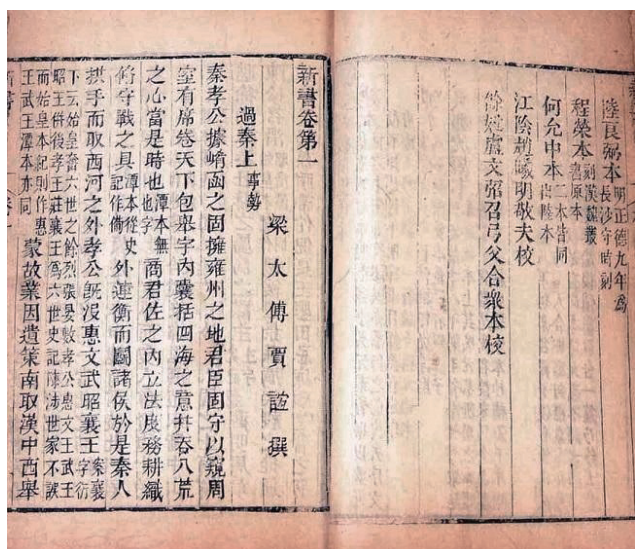 陸良弼本 明正德九年爲
長沙守時刻
程榮本 刻漢魏叢
書原本
何允中本 二本皆同
出陸本
江陰趙曦明敬夫校
餘姚盧文弨召弓父合衆本校
新書卷第一
梁太傅賈誼撰
過秦上 事勢
秦孝公據崤函之固擁雍州之地君臣固守以窺周
室有席卷天下包舉宇內囊括四海之意并吞八荒
之心當是時也 潭本無也字 商君佐之內立法度務耕織
脩守戰之具 潭本從史記作備 外連衡而鬭諸侯於是秦人
拱手而取西河之外孝公旣沒惠文武昭襄王 案襄字衍
下云始皇奮六世之餘烈張晏數孝公惠文王武王
昭王併後孝王莊襄王爲六世史記陳涉世家不誤
而始皇本紀則作惠
王武王潭本亦同 蒙故業因遺策南取漢中西舉